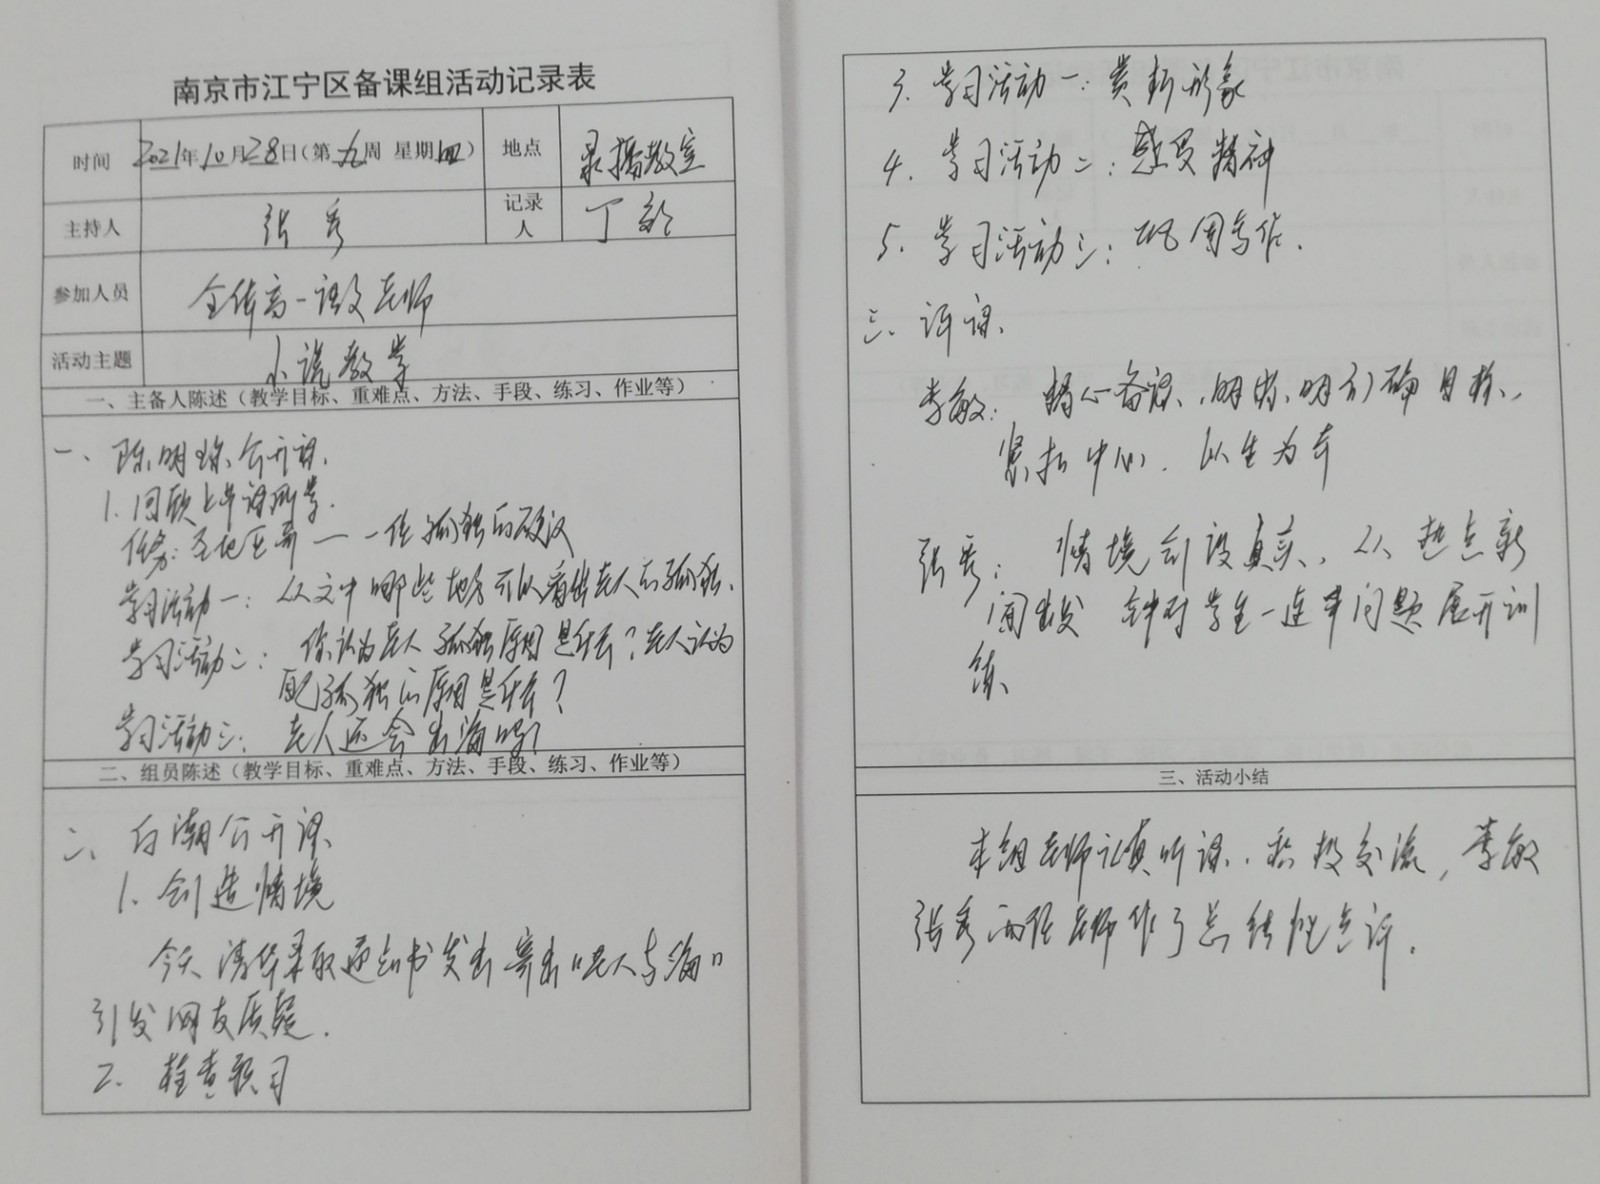 南京市江宁区备课组活动记录表
时间 2021年10月28日(第九周 星期四) 地点 录播教室
主持人 张秀 记录人 丁
参加人员 全体高一语文老师
活动主题 小说教学
一、主备人陈述(教学目标、重难点、方法、手段、练习、作业等)
一、陈明 公开课、
1.回顾上节课所学.
任务:圣地亚哥——一位孤独的硬汉
学习活动一:从文中哪些地方可以看出老人的孤独.
学习活动二:你认为老人孤独原因是什么?老人认为
自己孤独的原因是什么?
学习活动三:老人还会出海吗?
二、组员陈述(教学目标、重难点、方法、手段、练习、作业等)
二、白潮公开课
1.创造情境
今天清华录取通知书发出寄出"老人与海"
引发网友质疑.
2.检查预习
3.学习活动一:赏析形象
4.学习活动二:感受精神
5.学习活动三:巩固写作.
三、评课、
李敏: 心备课、明 、明 确目标,
紧扣中心.以生为本
张秀:情境创设真实、从热点新
闻出发 针对学生一连串问题展开训
练
三、活动小结
本组老师认真听课.积极交流,李敏
张秀两位老师作了总结性点评.